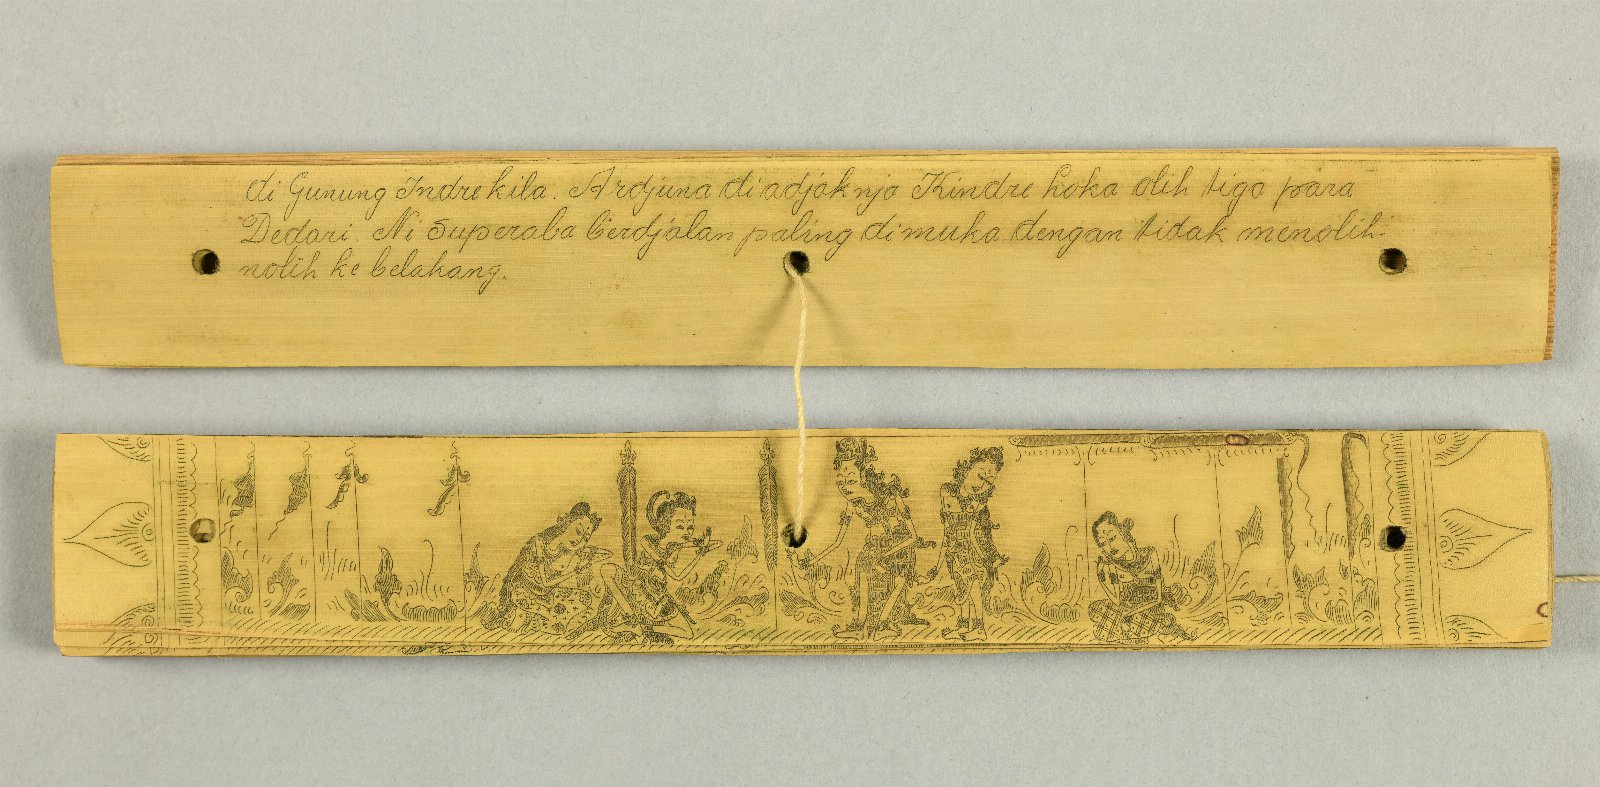 di Gunung Indrekila. Ardjuna di adjaknja Kindre hoka olih tiga para
Dedari. Ni Superaba berdjalan paling dimuka dengan tidak menolih
nolih ke belakang.